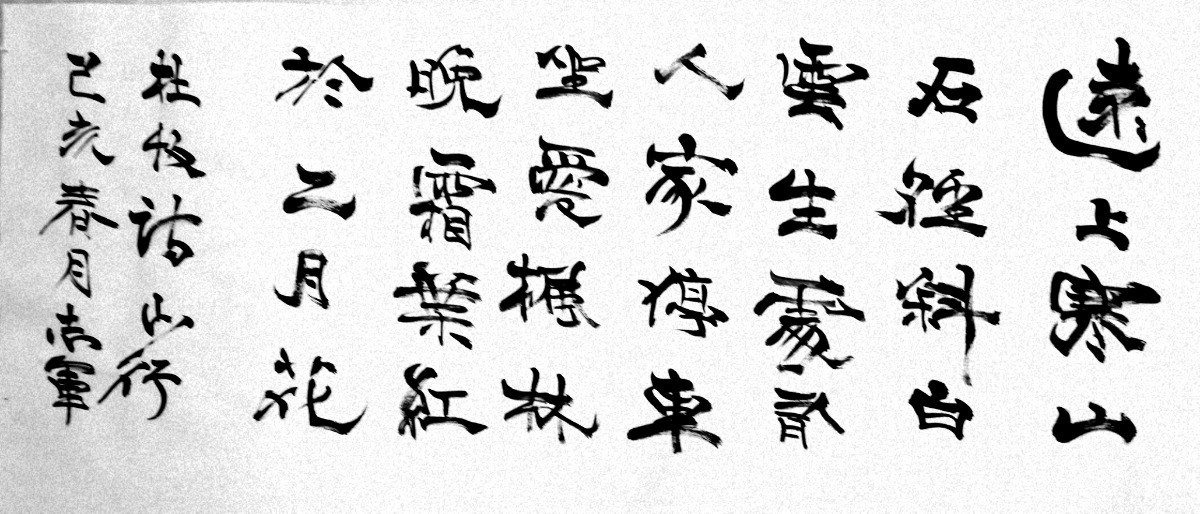 遠上寒山
石徑斜白
雲生處有
人家停車
坐愛楓林
晚霜葉紅
於二月花
杜牧詩山行
己亥春月軍